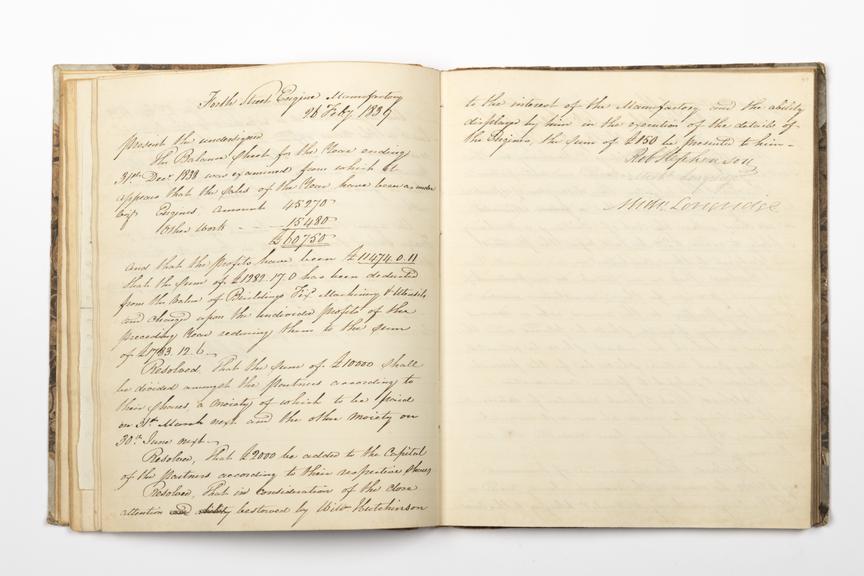 Forth Street Engine Manufactory
26 Feby 1839
Present the undersigned
The Balance Sheet for the Year ending
31st Decr 1838 was examined from which it
appears that the Sales of the Year have been as under
Engines, amount 45270
Other Work 15480
£60750
And that the Profits have been £11474.0.11
that the Sum of £1282.17.0 has been deducted
from the Value of Buildings Fixd Machinery & Utensils
and charged upon the undivided profits of the
preceding Year reducing them to the Sum
of £1783.12.6
Resolved, That the Sum of £10000 shall
be divided amongst the Partners according to
their Shares, a moiety of which to be paid
on 31st March next and the other moiety on
30th June next
Resolved, That £2000 be added to the Capital
of the Partners according to their respective Shares
Resolved, That in consideration of the close
attention and ability bestowed by Willm Hutchinson
to the interest of the Manufactory and the ability
displayed by him in the execution of the details of
the Engines, the Sum of £150 be presented to him
Rob Stephenson
Michl Longridge